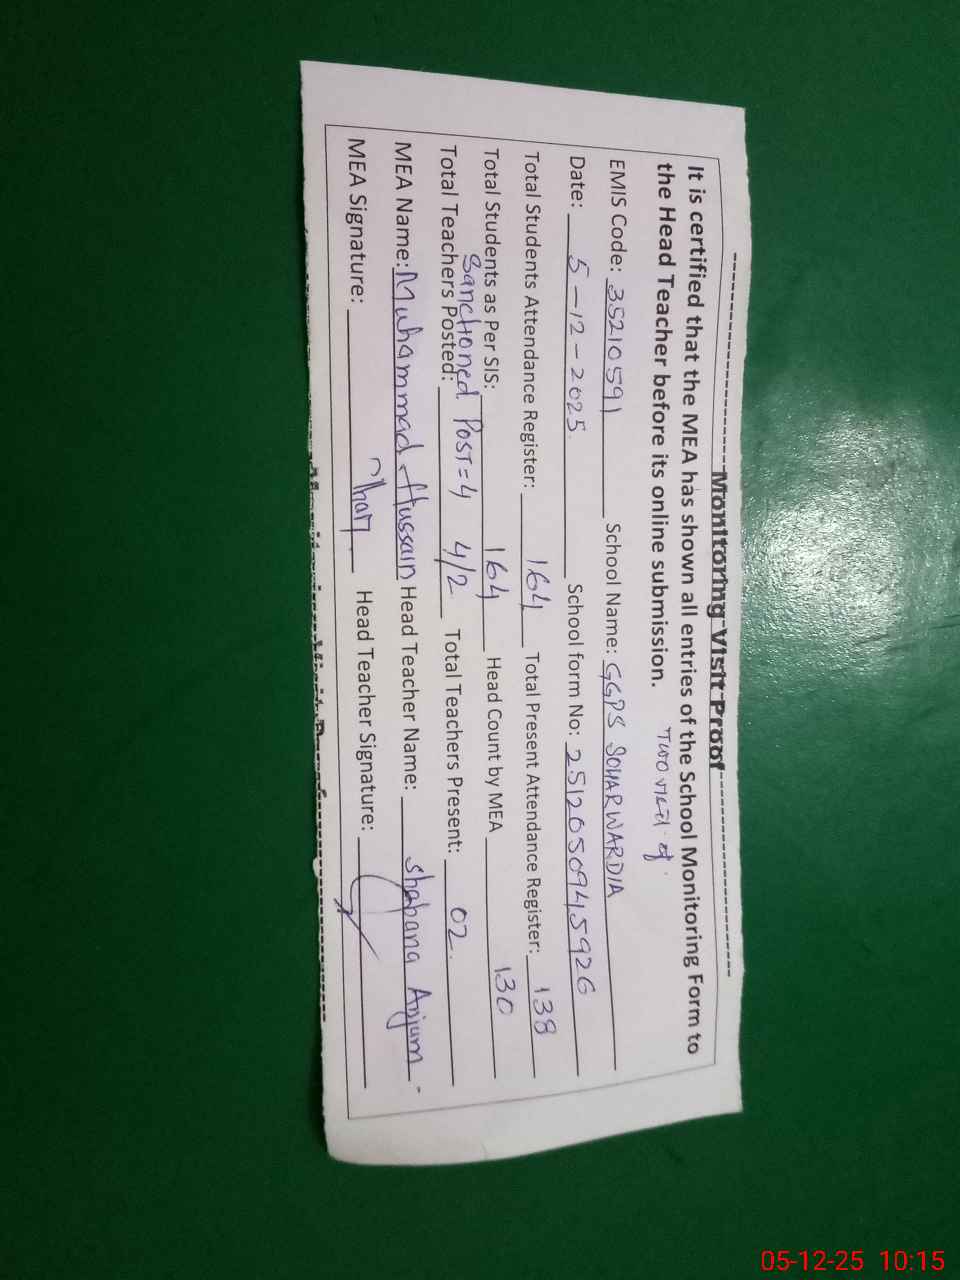 Monitoring Visit Proof
It is certified that the MEA has shown all entries of the School Monitoring Form to
the Head Teacher before its online submission.
EMIS Code: 35210591 School Name: GGPS SOHARWARDIA
Date: 5-12-2025 School form No: 251205094592G
Total Students Attendance Register: 164 Total Present Attendance Register: 138
Total Students as Per SIS: 164 Head Count by MEA 130
Sanctioned Post=4
Total Teachers Posted: 4/2 Total Teachers Present: 02
MEA Name: Muhammad Hussain Head Teacher Name: Shabana Anjum
MEA Signature: Head Teacher Signature:
05-12-25 10:15